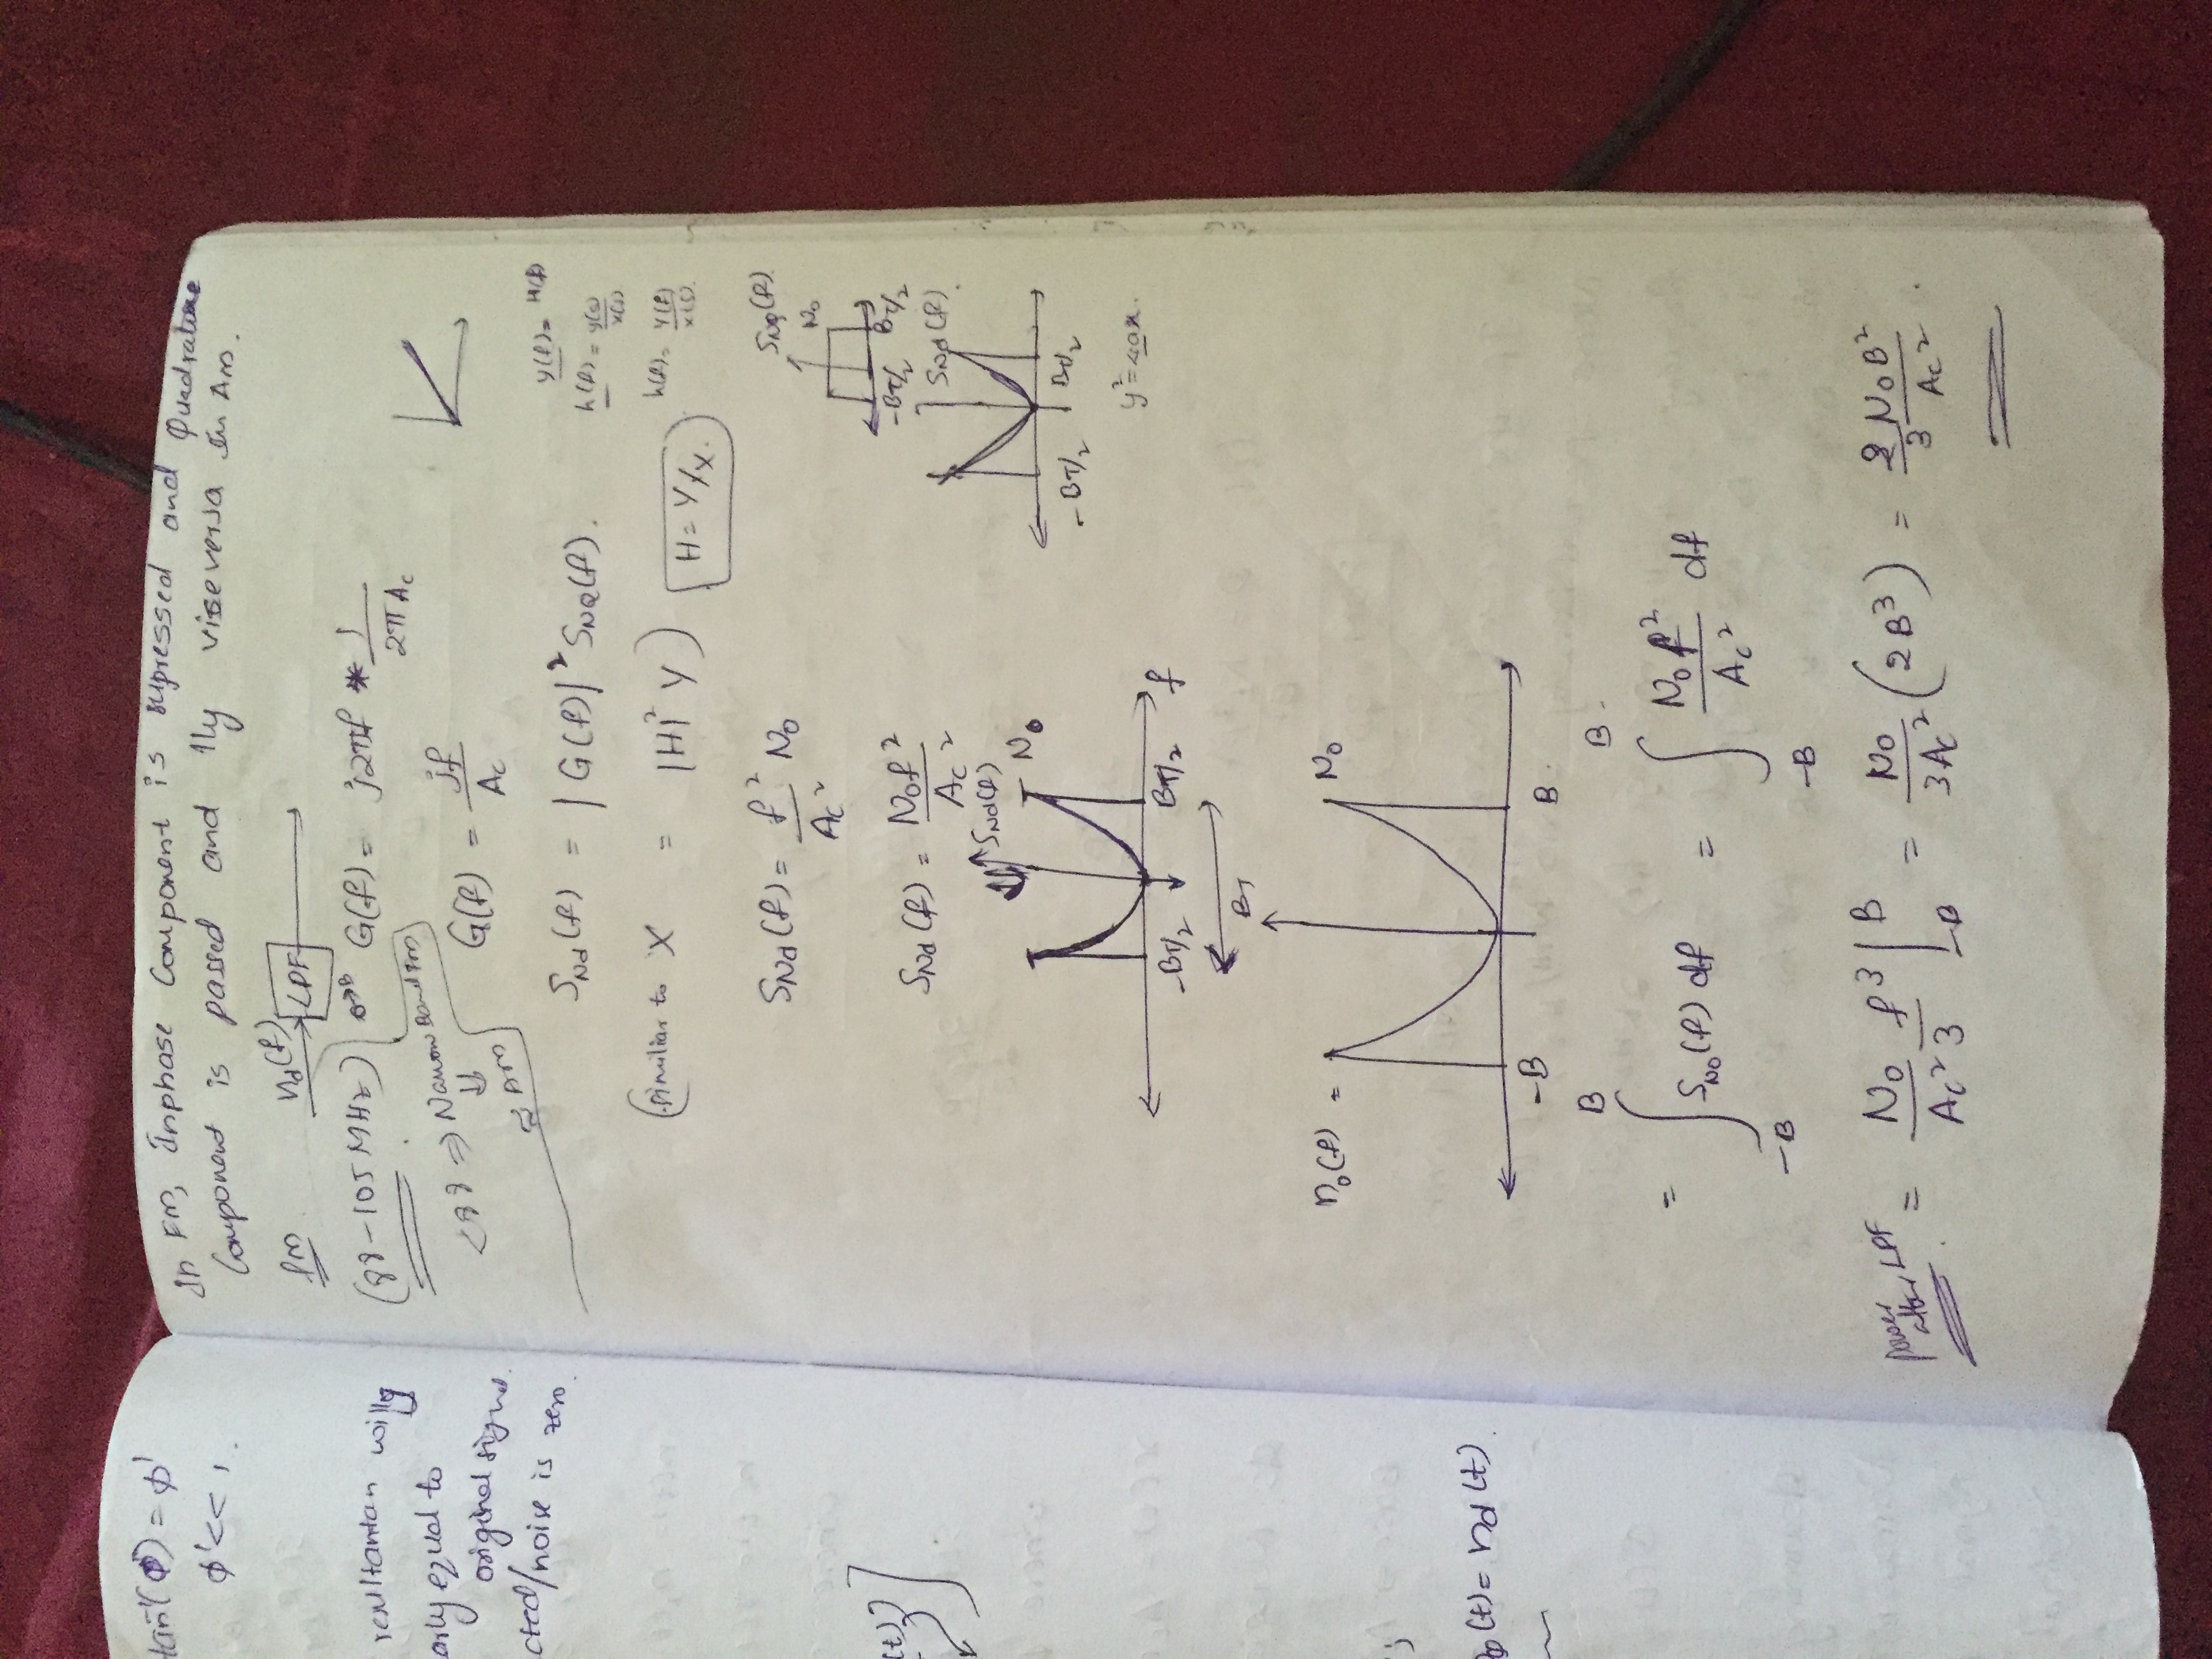 tan⁻¹(φ') = φ'
φ' << 1.
resultantan will
arly equal to
original signal.
cted/noise is zero.
(t)}]
(t) = nd(t).
In FM, Inphase Component is supressed and Quadrature
Component is passed and lly viseversa in Am.
nd(f) LPF
(88-105 MHz) 0→B G(f) = j2πf * 1/2πAc
<88 ⇒ Narrow Band Fm
⇓
≈ Am
G(f) = jf/Ac
SNd(f) = |G(f)|² SNQ(f).
y(f) = H(f)
h(f) = y(s)/x(s)
(similiar to X = |H|² Y) H = Y/X.
h(f) = Y(f)/X(s).
SNd(f) = f²/Ac² N₀
SNQ(f).
N₀
-BT/2 BT/2
SNd(f) = N₀f²/Ac²
SNd(f).
-BT/2 BT/2
y² = 4ax.
SNd(f)
N₀
-BT/2 BT/2 f
BT
n₀(f) = N₀
-B B.
= ∫_{-B}^{B} SN₀(f) df = ∫_{-B}^{B} N₀f²/Ac² df
power after LPF = N₀/Ac² f³/3 |_{-B}^{B} = N₀/3Ac² (2B³) = 2/3 N₀B²/Ac².